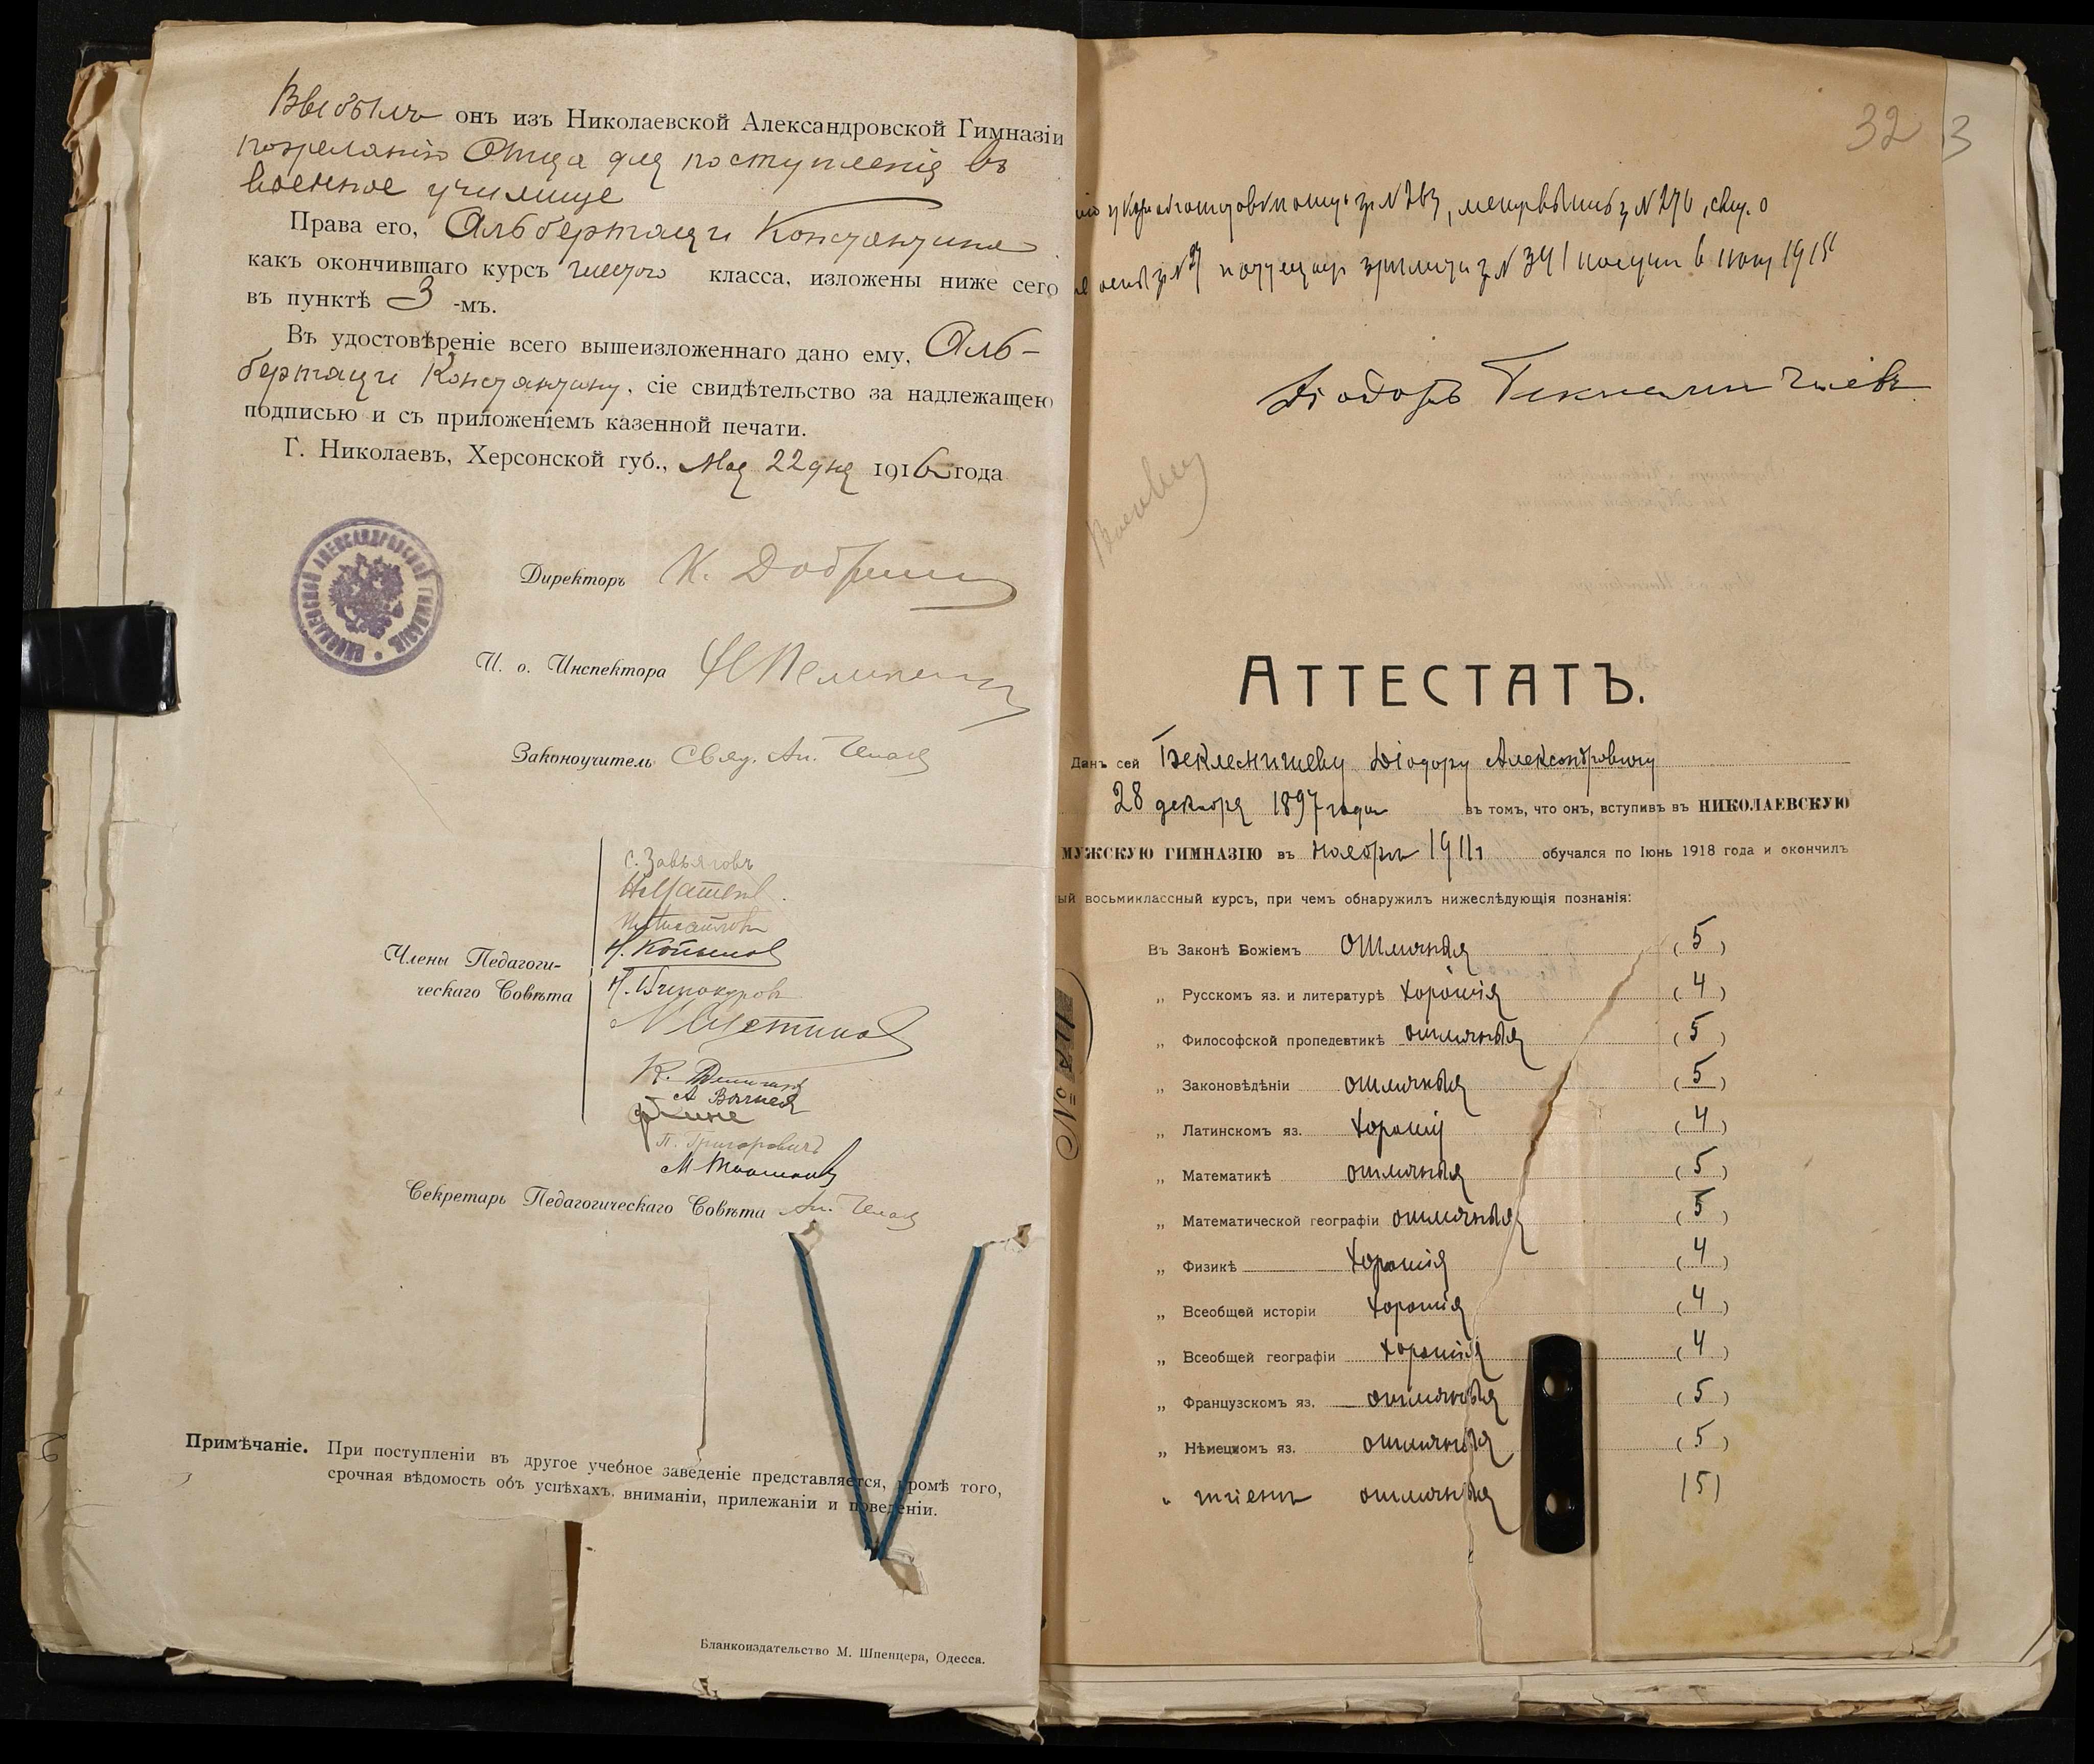 Выбылъ онъ изъ Николаевской Александровской Гимназіи
по желанію Отца для поступленія въ
военное училище
Права его, Альбертацци Константина
какъ окончившаго курсъ шестого класса, изложены ниже сего
въ пунктѣ 3 -мъ.
Въ удостовѣреніе всего вышеизложеннаго дано ему, Аль-
бертацци Константину, сіе свидѣтельство за надлежащею
подписью и съ приложеніемъ казенной печати.
Г. Николаевъ, Херсонской губ., Мая 22 дня 1916 года
НИКОЛАЕВСКОЙ АЛЕКСАНДРОВСКОЙ ГИМНАЗІИ
Директоръ К.
И. о. Инспектора
Законоучитель Свящ. Ал.
Члены Педагоги-
ческаго Совѣта
С. Завьяловъ
П. Григоровичъ
Секретарь Педагогическаго Совѣта Ал.
Примѣчаніе. При поступленіи въ другое учебное заведеніе представляется, кромѣ того,
срочная вѣдомость объ успѣхахъ, вниманіи, прилежаніи и поведеніи.
Бланкоиздательство М. Шпенцера, Одесса.
32 3
за № 263, за № 276,
за № 341 получилъ
Діодоръ Беклемишевъ
АТТЕСТАТЪ.
Данъ сей Беклемишеву Діодору Александровичу
28 декабря 1897 года въ томъ, что онъ, вступивъ въ НИКОЛАЕВСКУЮ
МУЖСКУЮ ГИМНАЗІЮ въ ноябрѣ 1911 обучался по Іюнь 1918 года и окончилъ
ый восьмиклассный курсъ, при чемъ обнаружилъ нижеслѣдующія познанія:
Въ Законѣ Божіемъ отличныя (5)
„ Русскомъ яз. и литературѣ хорошія (4)
„ Философской пропедевтикѣ отличныя (5)
„ Законовѣдѣніи отличныя (5)
„ Латинскомъ яз. хорошія (4)
„ Математикѣ отличныя (5)
„ Математической географіи отличныя (5)
„ Физикѣ хорошія (4)
„ Всеобщей исторіи хорошія (4)
„ Всеобщей географіи хорошія (4)
„ Французскомъ яз. отличныя (5)
„ Нѣмецкомъ яз. отличныя (5)
„ гигіенѣ отличныя (5)